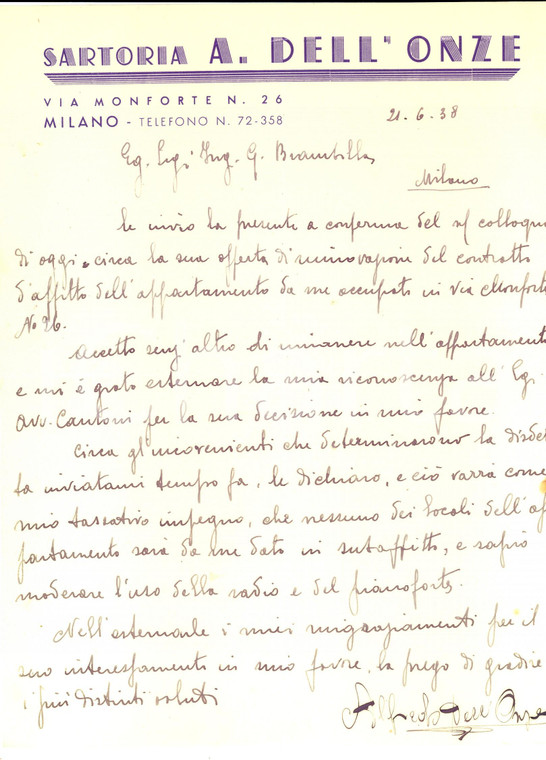 SARTORIA A. DELL'ONZE
VIA MONFORTE N. 26
MILANO - TELEFONO N. 72-358
21.6.38
Eg. Sig. Ing. G. Brambilla
Milano
le invio la presente a conferma del ns/ colloquio
di oggi, circa la sua offerta di rinnovazione del contratto
d'affitto dell'appartamento da me occupato in via Monforte
No 26.
Accetto senz'altro di rimanere nell'appartamento
e mi è grato esternare la mia riconoscenza all'Egr.
Avv. Cantoni per la sua decisione in mio favore.
Circa gl'incovenienti che determinarono la disdet
ta inviatami tempo fa, le dichiaro, e ciò varrà come
mio tassativo impegno, che nessuno dei locali dell'ap
partamento sarà da me dato in subaffitto, e saprò
moderare l'uso della radio e del pianoforte.
Nell'esternarle i miei ringraziamenti per il
suo interessamento in mio favore, la prego di gradire
i più distinti saluti
Alfredo Dell'Onze